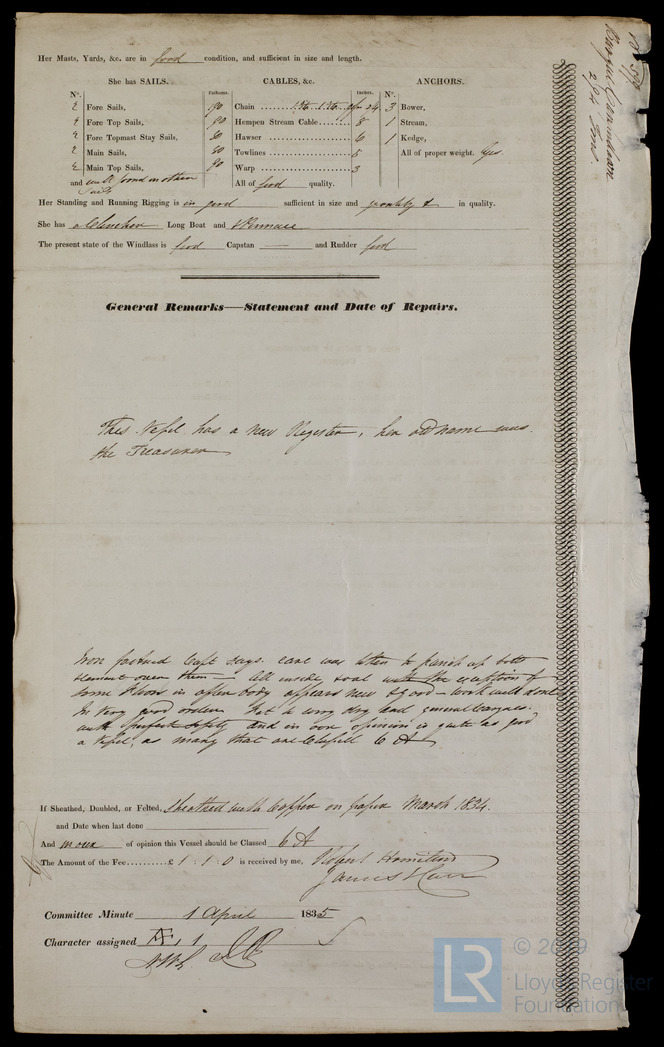 Her Masts, Yards, &c. are in good condition, and sufficient in size and length.
She has SAILS.
CABLES, &c.
ANCHORS.
No.
Fathoms.
Inches.
No.
2 Fore Sails, 90 Chain 3 Bower,
2 Fore Top Sails, 90 Hempen Stream Cable 8 1 Stream,
2 Fore Topmast Stay Sails, 80 Hawser 6 1 Kedge,
2 Main Sails, 80 Towlines 5 All of proper weight. Yes
2 Main Top Sails, 80 Warp 3
and with good on other Sails All of good quality.
Her Standing and Running Rigging is in good sufficient in size and quantity & in quality.
She has a Long Boat and Pinnace
The present state of the Windlass is good Capstan — and Rudder good
General Remarks—Statement and Date of Repairs.
This Vefsel has a new Register, her old name was
the Treasurer
Iron Capt says care was taken to up bolts
over them — All inside
some floors in after body appears new & good — work well done
In very good order. Not a very dry and general Cargoes
with perfect safety and in our opinion is quite as good
a Vefsel, as many that are Clafsed 6 A
If Sheathed, Doubled, or Felted, Sheathed with Copper on paper March 1834.
and Date when last done
And of opinion this Vessel should be Classed 6 A
The Amount of the Fee £ 1 : 1 : 0 is received by me, Robert
James
Committee Minute 1 April 1835
Character assigned Æ 1
Barque
294 Tons.
LR
© 2019
Lloyd's Register
Foundation